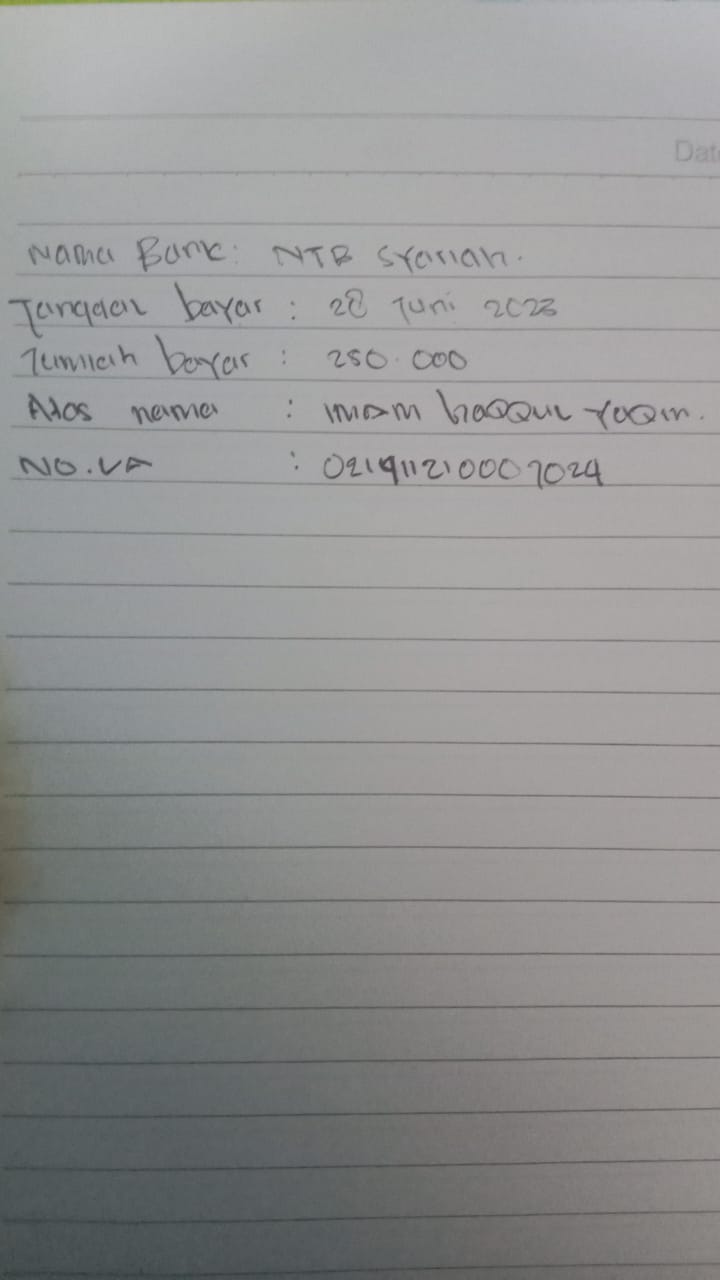 Date
Nama Bank: NTB Syariah.
Tanggal bayar : 28 Juni 2023
Jumlah bayar : 250.000
Atas nama : imam haqqul yaqin.
NO.VA :